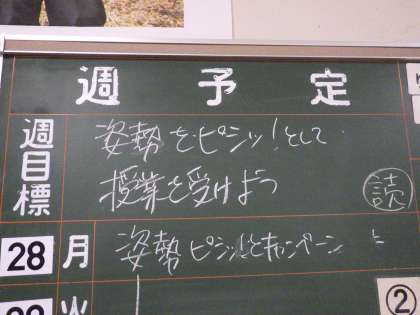 週予定
週目標
姿勢をピシッ!として
授業を受けよう
読
28 月 姿勢ピシッ!とキャンペーン
火
②